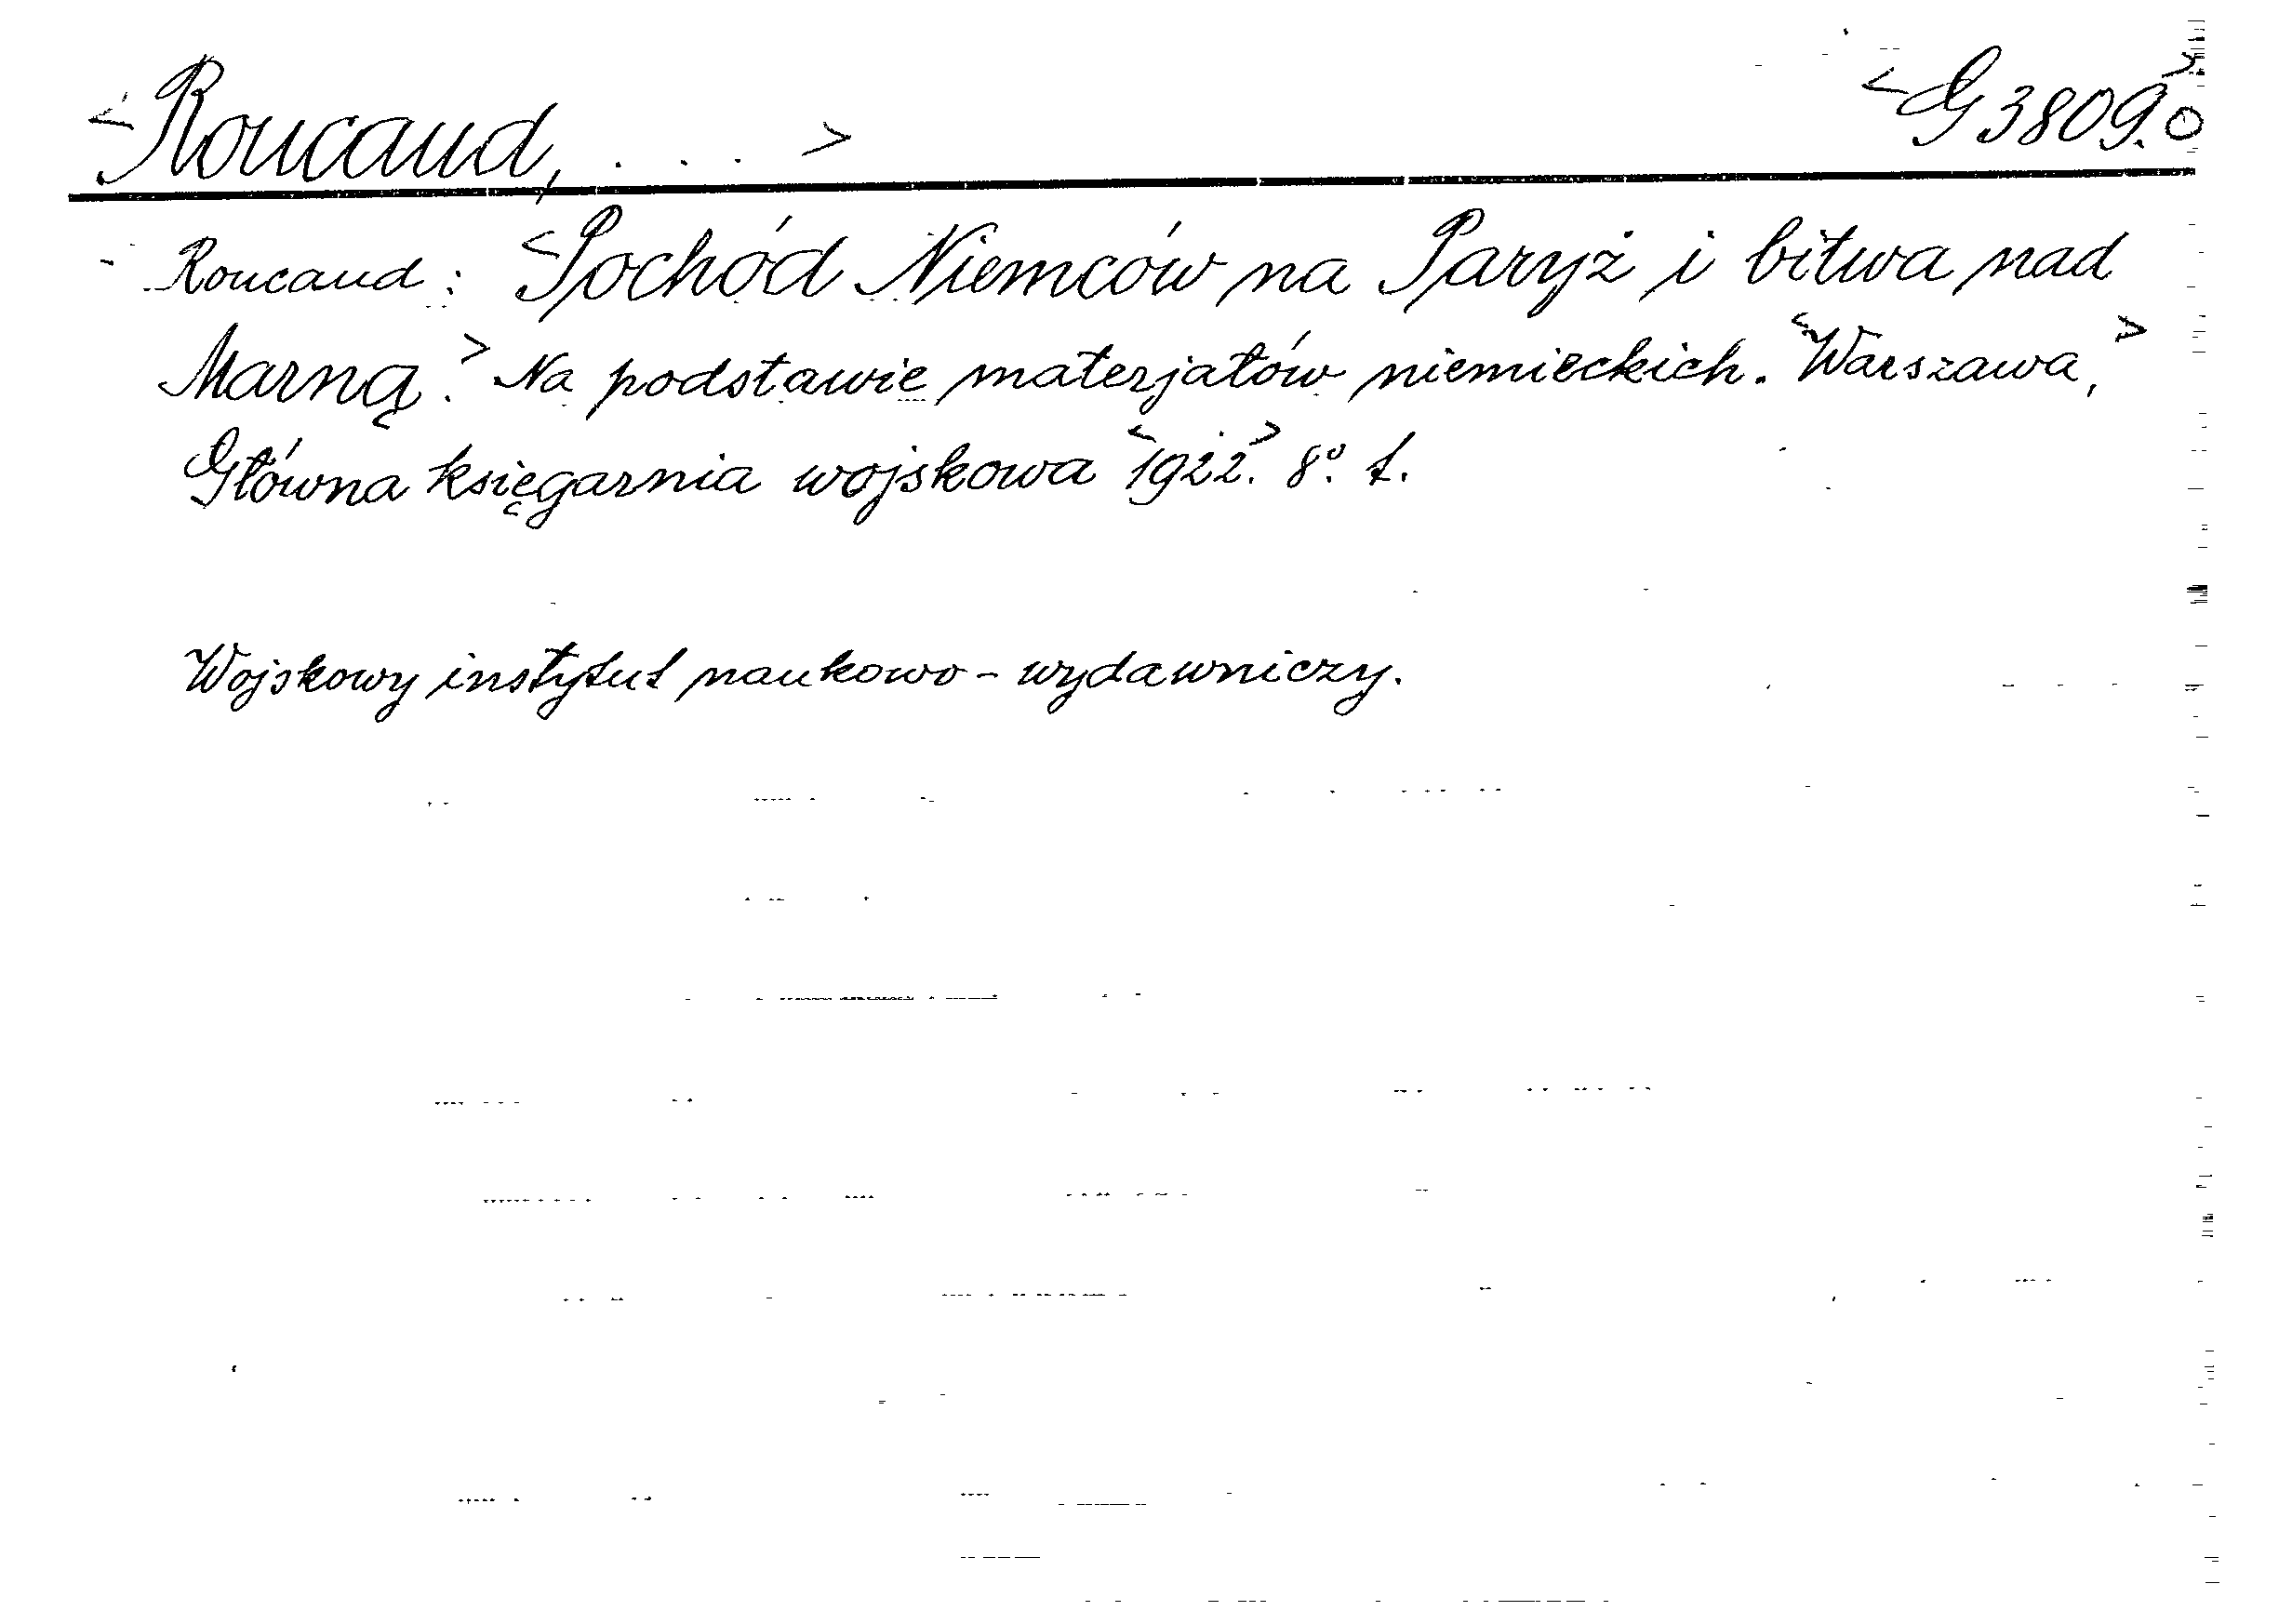 <Roucaud, . . . > <G 3809.0>
Roucaud: <Pochód Niemców na Paryż i bitwa nad
Marną.> Na podstawie materjałów niemieckich. <Warszawa,>
Główna księgarnia wojskowa <1922.> 8º. t.
Wojskowy instytut naukowo-wydawniczy.